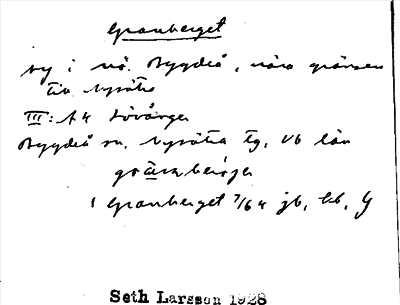 Granberget
by i nö. Bygdeå, nära gränsen
till Nysätra
III: A4 Lövånger
Bygdeå sn. Nysätra tg, Vb län
1 Granberget 7/64 jb, kb, G
Seth Larsson 1928